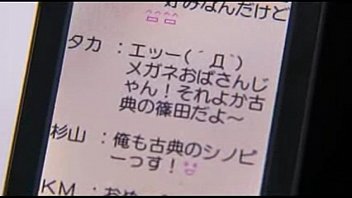 好みなんだけど
タカ：エッー(´Д`)
メガネおばさんじ
ゃん！それよか古
典の篠田だよ～
杉山：俺も古典のシノピ
ーっす！
KM：おめ